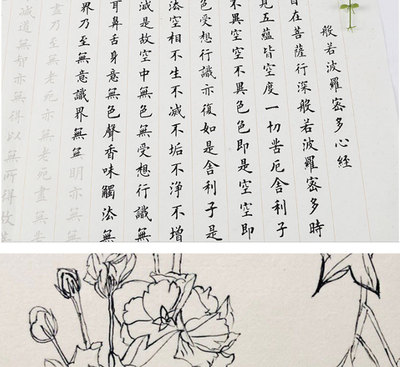 般若波羅密多心經
自在菩薩行深般若波羅密多時
見五蘊皆空度一切苦厄舍利子
不異空空不異色色即是空空即
色受想行識亦復如是舍利子是
法空相不生不滅不垢不淨不增
減是故空中無色無受想行識無
耳鼻舌身意無色聲香味觸法無
界乃至無意識界無無明亦無無
乃至無老死亦無老死盡無苦
滅道無智亦無得以無所得故